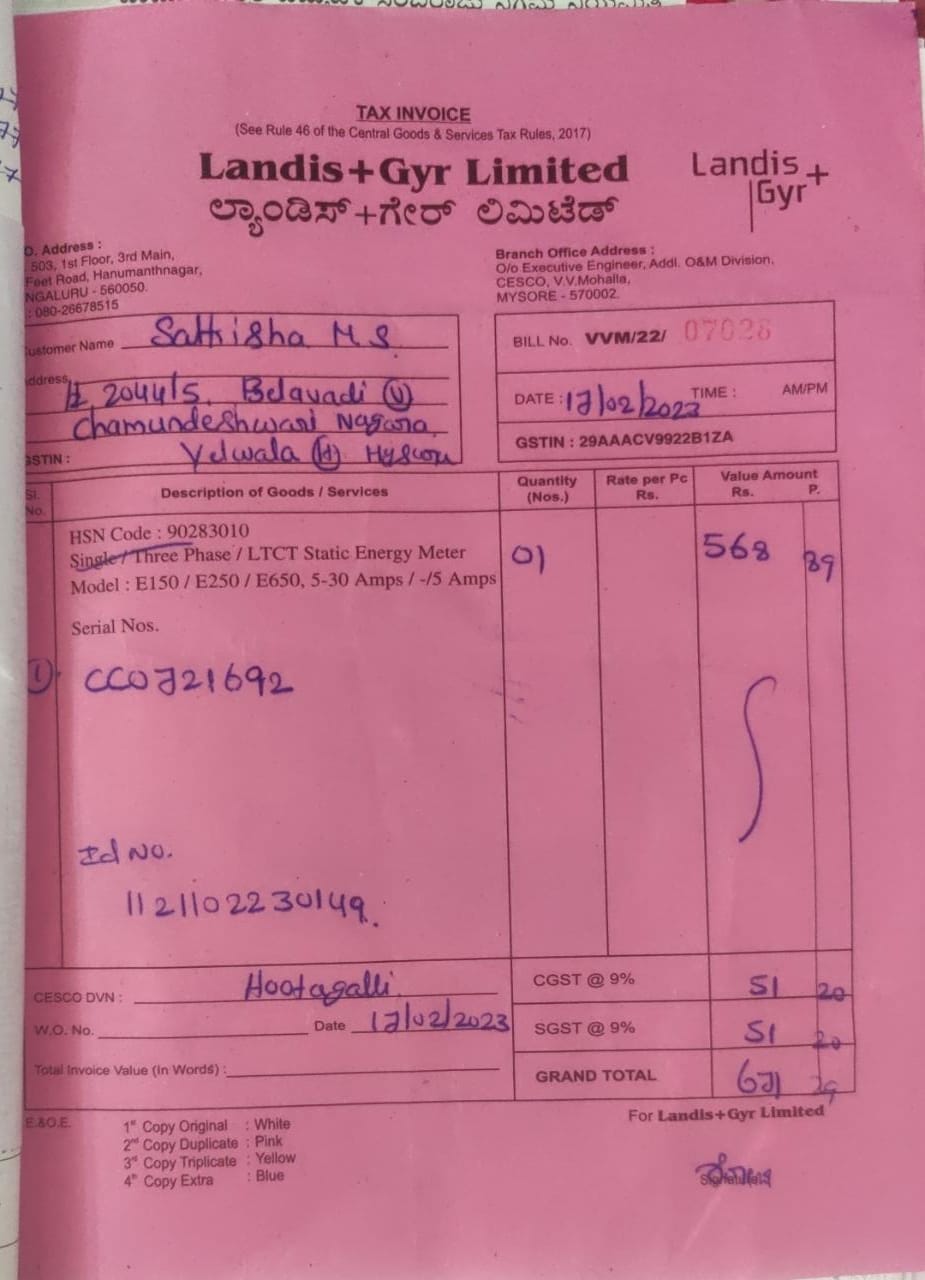 TAX INVOICE
(See Rule 46 of the Central Goods & Services Tax Rules, 2017)
Landis+Gyr Limited
ಲ್ಯಾಂಡಿಸ್+ಗೇರ್ ಲಿಮಿಟೆಡ್
Landis
Gyr+
O. Address :
503, 1st Floor, 3rd Main,
Feet Road, Hanumanthnagar,
NGALURU - 560050.
: 080-26678515
Branch Office Address :
O/o Executive Engineer, Addl. O&M Division,
CESCO, V.V.Mohalla,
MYSORE - 570002.
ustomer Name Sathisha M S.
ddress # 2044/5, Belavadi (V)
Chamundeshwari Nagara
GSTIN : Yelwala (H)
BILL No. VVM/22/ 07028
DATE : 17/02/2023 TIME : AM/PM
GSTIN : 29AAACV9922B1ZA
Sl. No. Description of Goods / Services Quantity (Nos.) Rate per Pc Rs. Value Amount Rs. P.
HSN Code : 90283010
Single / Three Phase / LTCT Static Energy Meter 01 568 89
Model : E150 / E250 / E650, 5-30 Amps / -/5 Amps
Serial Nos.
1) CC0721692
Id No.
1121102230149.
CESCO DVN : Hootagalli
CGST @ 9% 51 20
W.O. No. Date 17/02/2023
SGST @ 9% 51 20
Total Invoice Value (In Words) :
GRAND TOTAL 671 29
E.&O.E.
1st Copy Original : White
2nd Copy Duplicate : Pink
3rd Copy Triplicate : Yellow
4th Copy Extra : Blue
For Landis+Gyr Limited